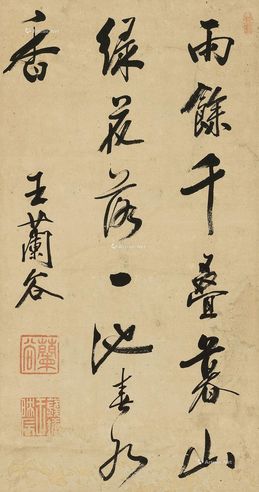 雨餘千疊暮山
綠花落一池春水
香
王蘭谷